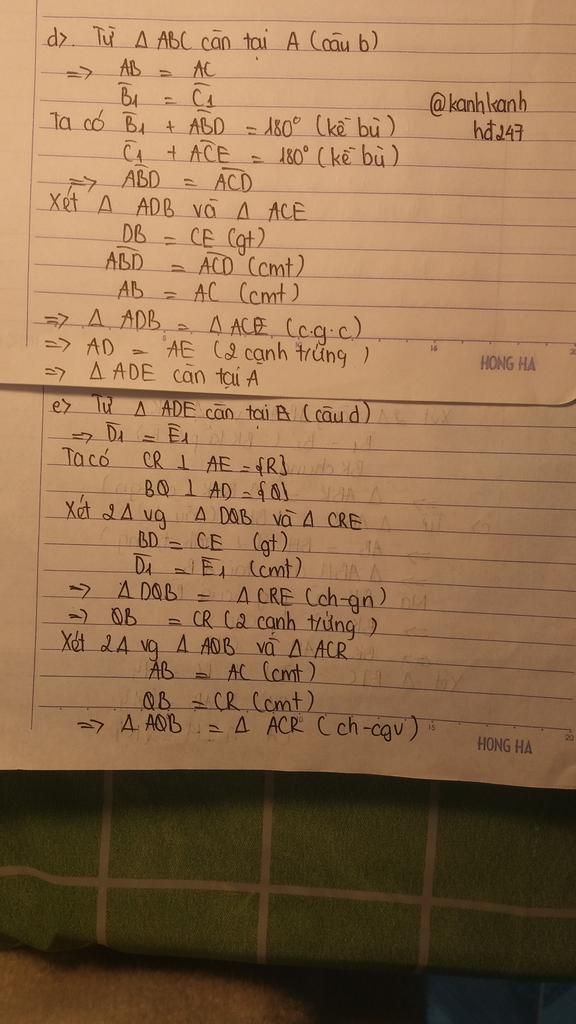 d>. Từ Δ ABC cân tại A (câu b)
=> AB = AC
B̂1 = Ĉ1
@kanhkanh
hđ247
Ta có B̂1 + ABD̂ = 180° (kề bù)
Ĉ1 + ACÊ = 180° (kề bù)
=> ABD̂ = ACD̂
Xét Δ ADB và Δ ACE
DB = CE (gt)
ABD̂ = ACD̂ (cmt)
AB = AC (cmt)
=> Δ ADB = Δ ACE (c.g.c)
=> AD = AE (2 cạnh t/ứng)
=> Δ ADE cân tại A
15
20
HONG HA
e> Từ Δ ADE cân tại A (câu d)
=> D̂1 = Ê1
Ta có CR ⊥ AE = {R}
BQ ⊥ AD = {Q}
Xét 2Δ vg Δ DQB và Δ CRE
BD = CE (gt)
D̂1 = Ê1 (cmt)
=> Δ DQB = Δ CRE (ch-gn)
=> QB = CR (2 cạnh t/ứng)
Xét 2Δ vg Δ AQB và Δ ACR
AB = AC (cmt)
QB = CR (cmt)
=> Δ AQB = Δ ACR (ch-cgv)
15
20
HONG HA